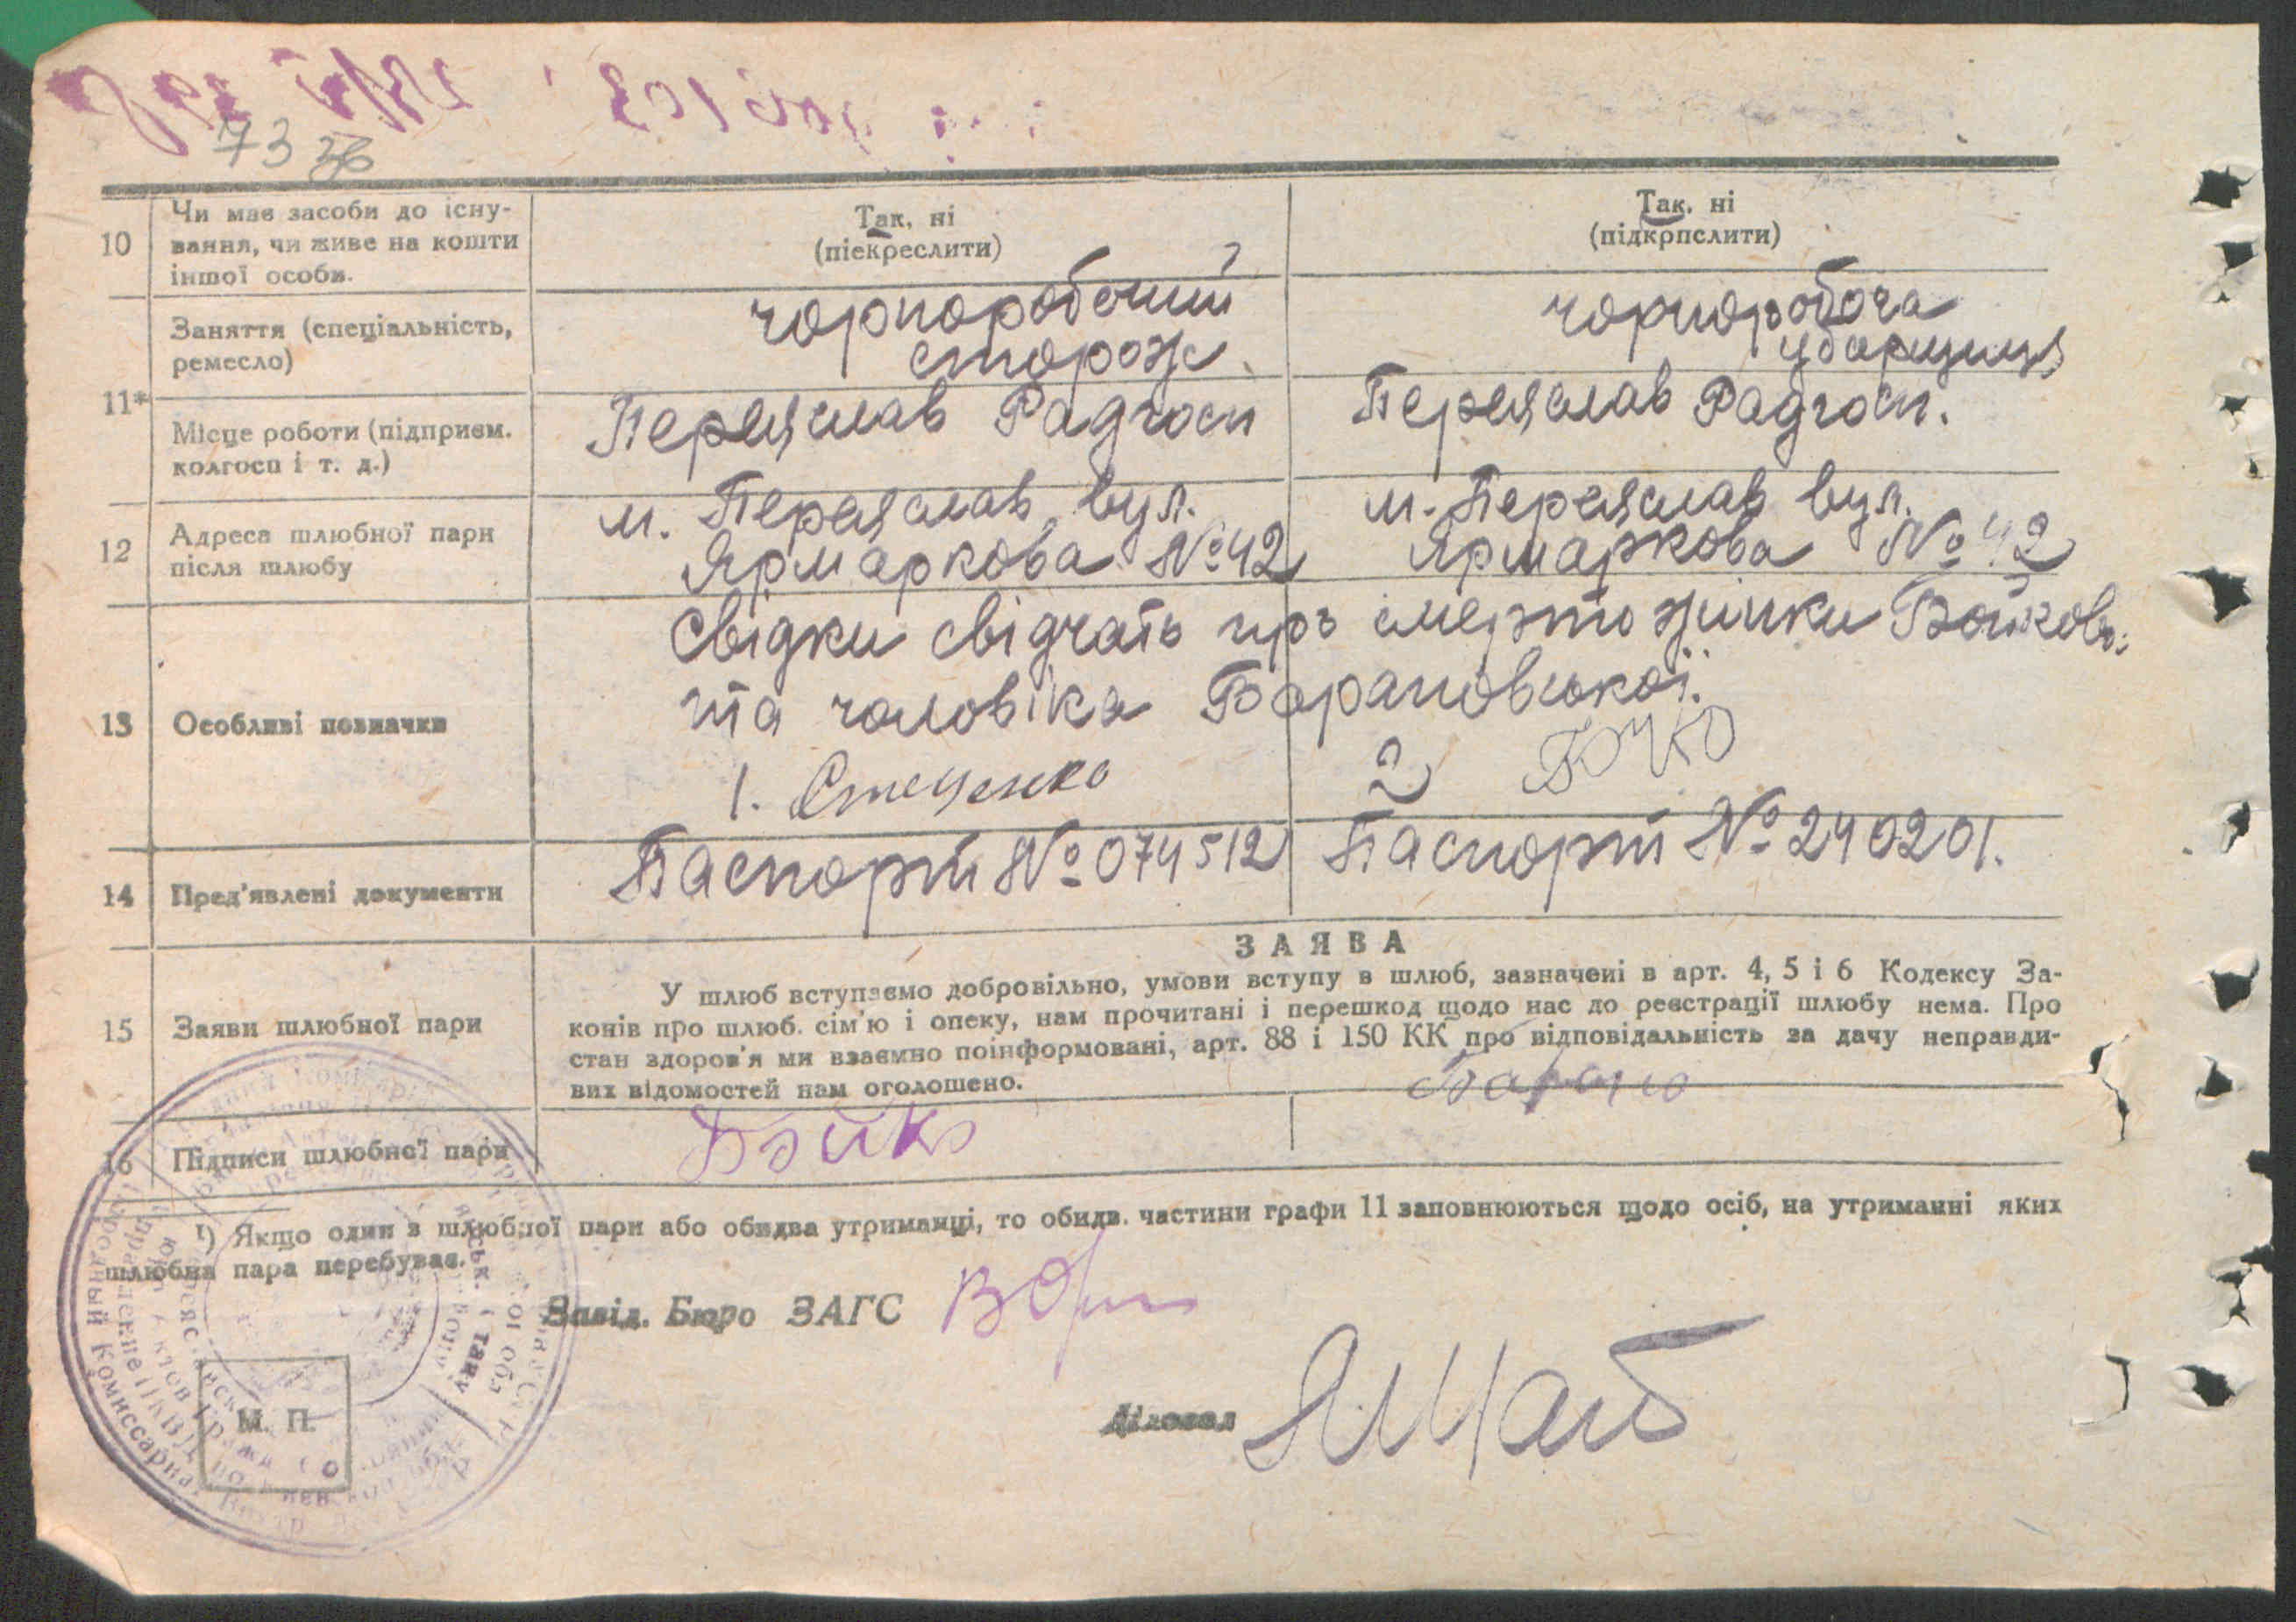 73
10 Чи має засоби до існу-
вання, чи живе на кошти
іншої особи.
Так, ні
(піекреслити)
Так, ні
(підкрпслити)
11*
Заняття (спеціальність,
ремесло)
чорноробочий
сторож
чорноробоча
уборщиця
Місце роботи (підприєм.
колгосп і т. д.)
Переяслав Радгосп
Переяслав Радгосп.
12 Адреса шлюбної пари
після шлюбу
м. Переяслав вул.
Ярмаркова №42
м. Переяслав вул.
Ярмаркова №42
13 Особливі позначки
Свідки свідчать про смерть жінки Бойков.
та чоловіка Барановської.
1. Стеценко
2
14 Пред'явлені документи
Паспорт №074512
Паспорт №240201.
15 Заяви шлюбної пари
ЗАЯВА
У шлюб вступаємо добровільно, умови вступу в шлюб, зазначені в арт. 4, 5 і 6 Кодексу За-
конів про шлюб. сім'ю і опеку, нам прочитані і перешкод щодо нас до реєстрації шлюбу нема. Про
стан здоров'я ми взаємно поінформовані, арт. 88 і 150 КК про відповідальність за дачу неправди-
вих відомостей нам оголошено.
16 Підписи шлюбної пари
Бойко
¹) Якщо один з шлюбної пари або обидва утриманці, то обидв. частини графи 11 заповнюються щодо осіб, на утриманні яких
шлюбна пара перебуває.
Завід. Бюро ЗАГС
Діловод
М. П.